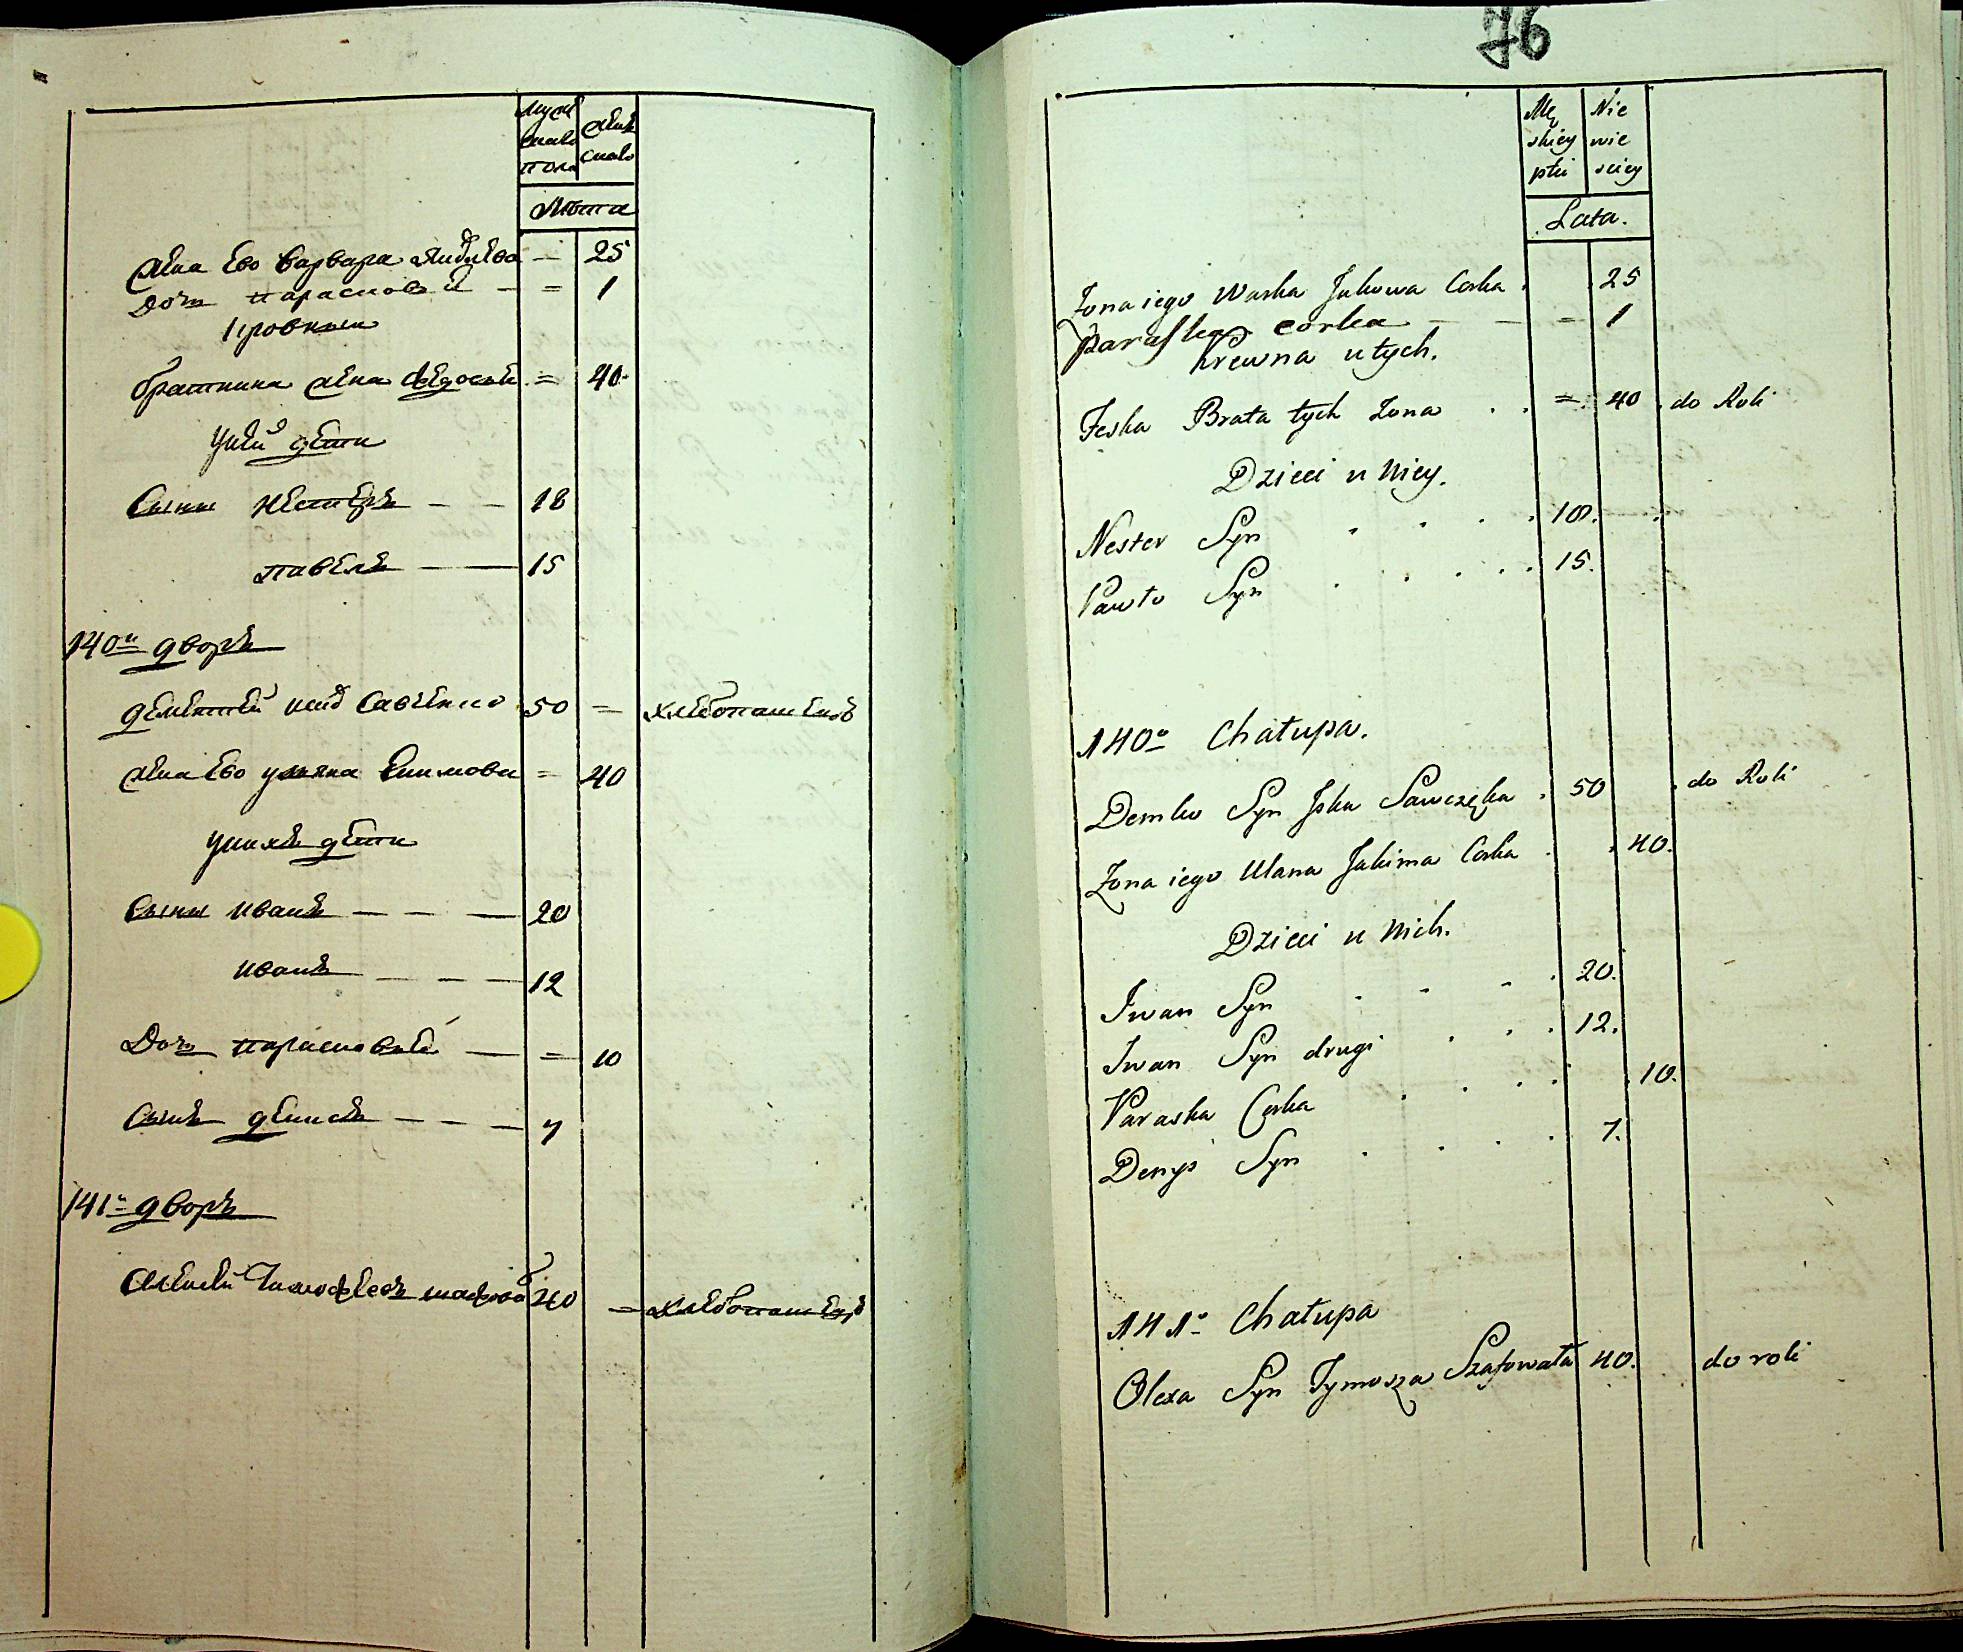 Муж
скаго
пола
Жен
скаго
Лѣта
Жена Ево варвара Якубова — 25
Дочь парасковѣй — = 1
Кровныи
братнина жена Федосья = 40.
унеи дети
Сыны Нестеръ — — 18
павелъ — — 15
140й дворъ
дементей Савченко 50 = хлебопашецъ
жена Ево ульяна Екимова = 40
унихъ дети
Сыны иванъ — — — 20
иванъ — — — 12
Дочь парасковей — = 10
Сынъ денисъ — — — 7
141й дворъ
Алексей Тимофеевъ 40 = хлебопашецъ
76
Mę
skiey
płci
Nie
wie
sciey
Lata.
Zona iego Waska Jakowa Corka . . 25
Paraska corka — — = 1
Krewna u tych.
Feska Brata tych zona . . = 40 . do Roli
Dzieci u Niey.
Nester Syn . . . . 18.
Pawło Syn . . . . . 15.
140o Chałupa.
Demko Syn Jska Sawczęka . 50 . do Roli
Zona iego Ulana Jakima Corka . . 40.
Dzieci u Nich.
Iwan Syn . . . . 20.
Iwan Syn drugi . . . 12.
Paraska Corka . . . . . 10.
Denys Syn . . . . 7.
141o Chałupa
Olexa Syn Tymosza Szafowała 40. do roli